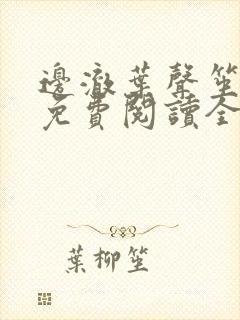 邊澈葉聲笙
免費閱讀全
葉柳笙